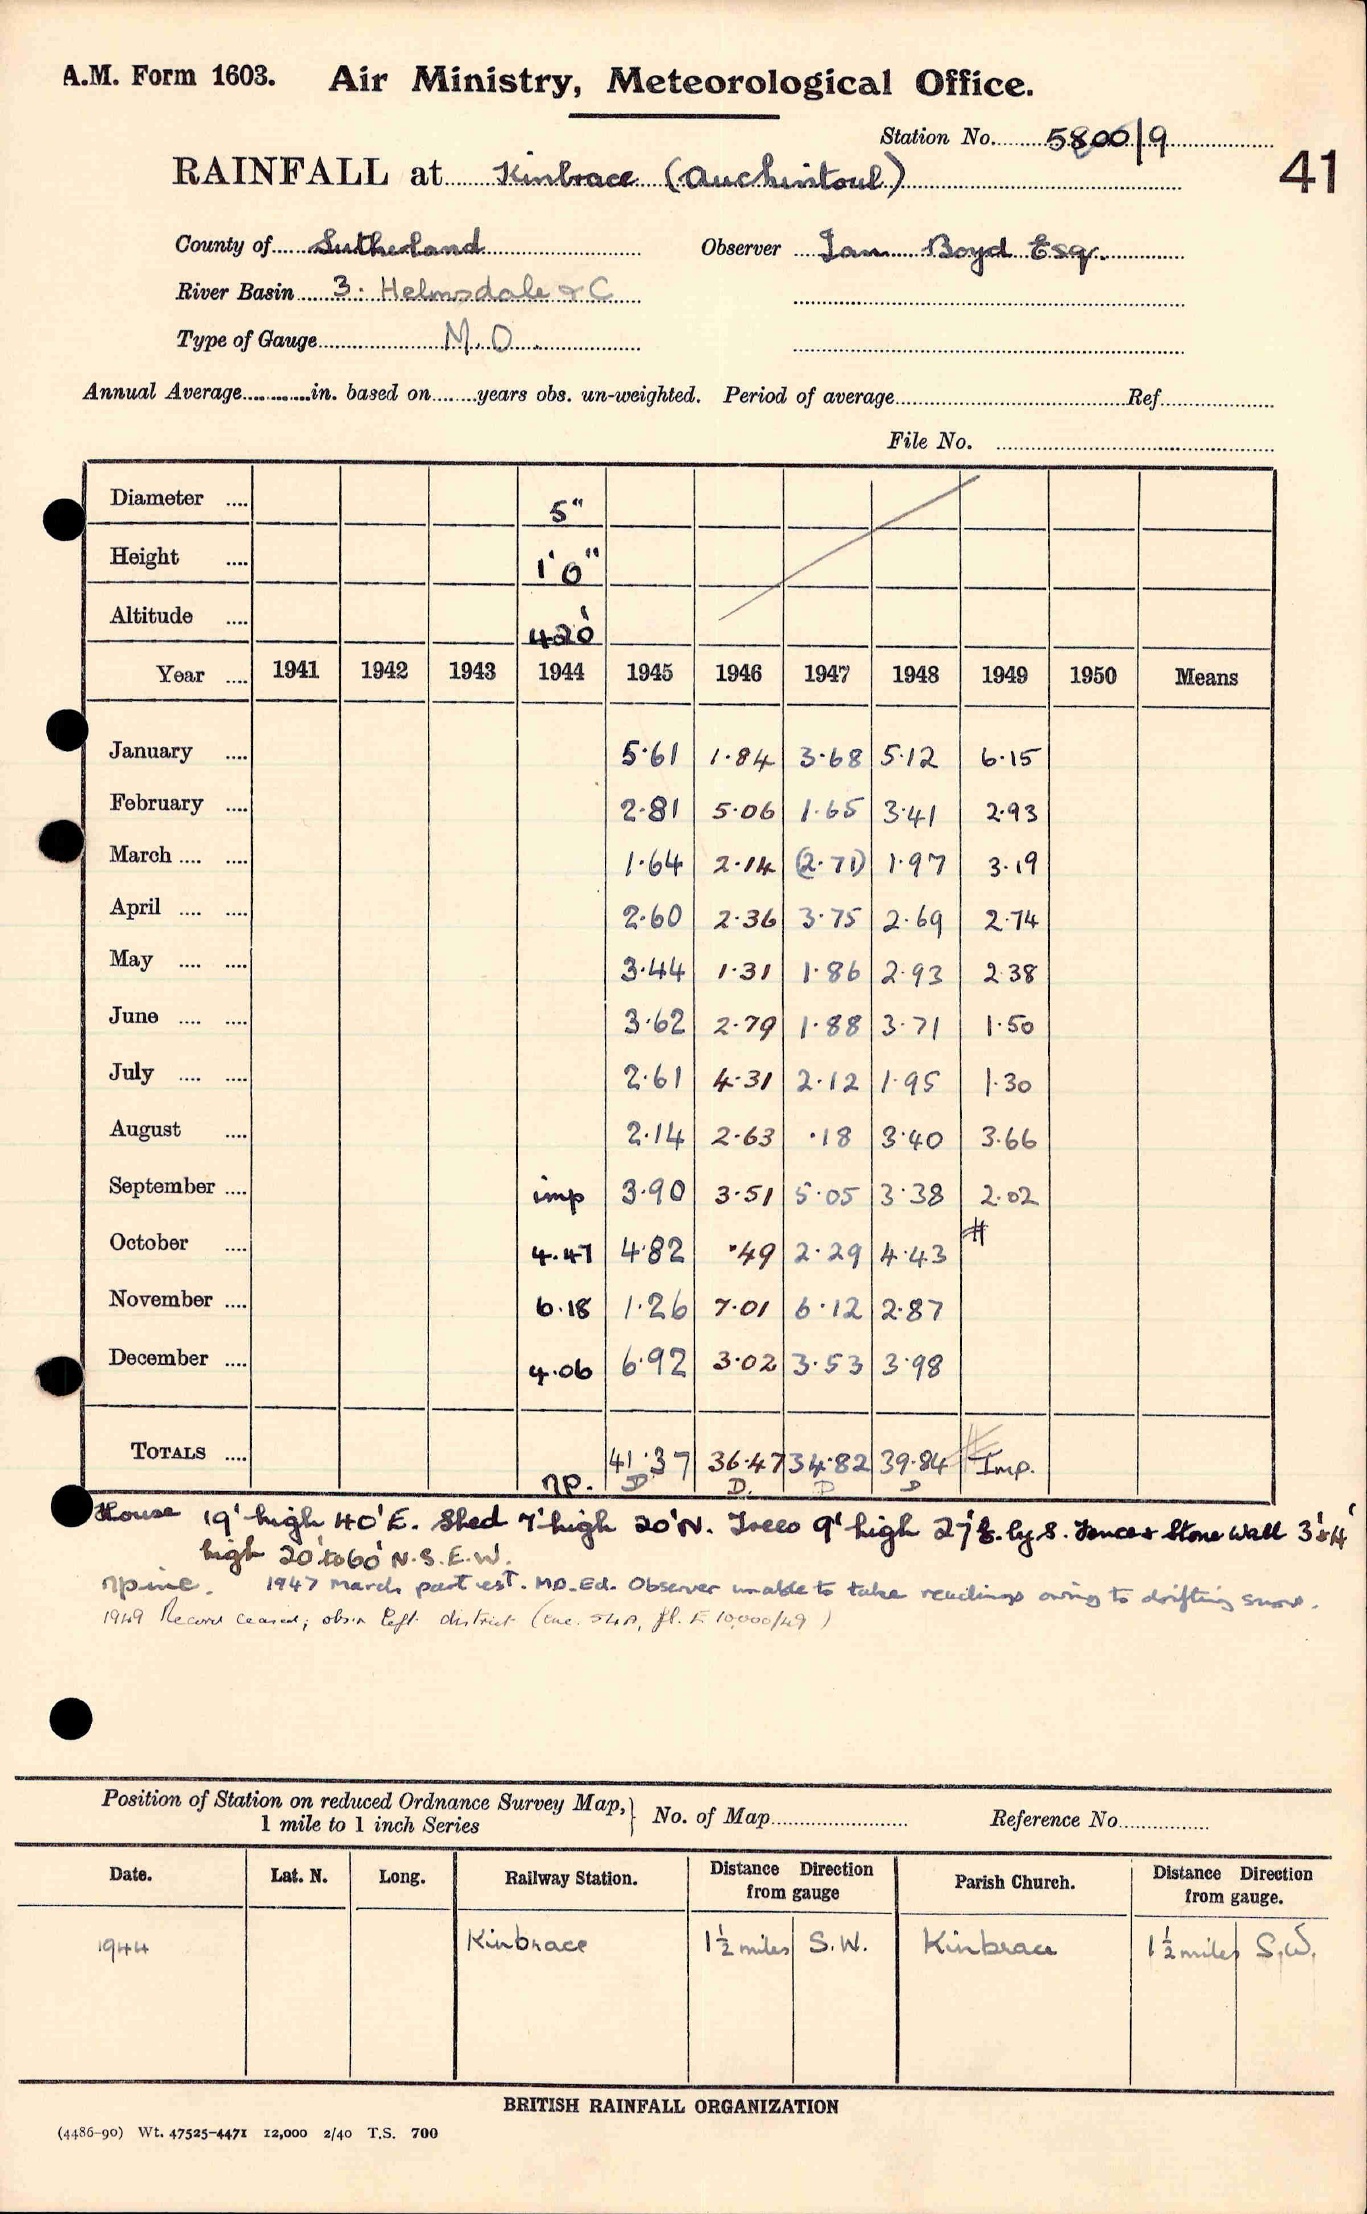 A.M. Form 1603. Air Ministry, Meteorological Office.
Station No. 5800/9
41
RAINFALL at Kinbrace (Auchintoul)
County of Sutherland Observer Ian Boyd Esq.
River Basin 3. Helmsdale & C
Type of Gauge M.O.
Annual Average in. based on years obs. un-weighted. Period of average Ref
File No.
Diameter 5"
Height 1'0"
Altitude 420'
Year 1941 1942 1943 1944 1945 1946 1947 1948 1949 1950 Means
January 5.61 1.84 3.68 5.12 6.15
February 2.81 5.06 1.65 3.41 2.93
March 1.64 2.14 (2.71) 1.97 3.19
April 2.60 2.36 3.75 2.69 2.74
May 3.44 1.31 1.86 2.93 2.38
June 3.62 2.79 1.88 3.71 1.50
July 2.61 4.31 2.12 1.95 1.30
August 2.14 2.63 .18 3.40 3.66
September imp 3.90 3.51 5.05 3.38 2.02
October 4.47 4.82 .49 2.29 4.43 #
November 6.18 1.26 7.01 6.12 2.87
December 4.06 6.92 3.02 3.53 3.98
TOTALS np. 41.37 36.47 34.82 39.84 # Imp.
D D. D D
House 19' high 40' E. Shed 7' high 20' N. Trees 9' high 27 by S. Fence & Stone Wall 3' & 4'
high 20' to 60' N.S.E.W.
1947 March part est. MO. Ed. Observer unable to take readings owing to drifting snow.
1949 Record ceased; obsr left district (enc. 54A, fl. E 10,000/49)
Position of Station on reduced Ordnance Survey Map,} No. of Map Reference No
1 mile to 1 inch Series
Date. Lat. N. Long. Railway Station. Distance Direction from gauge Parish Church. Distance Direction from gauge.
1944 Kinbrace 1½ miles S.W. Kinbrace 1½ miles S.W.
BRITISH RAINFALL ORGANIZATION
(4486-90) Wt. 47525-4471 12,000 2/40 T.S. 700